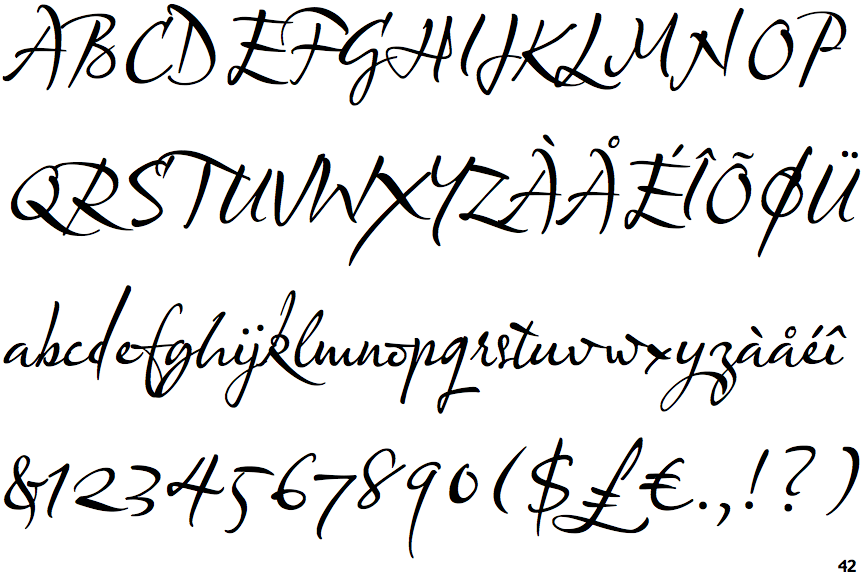 ABCDEFGHIJKLMNOP
QRSTUVWXYZÀÅÉÎÕØÜ
abcdefghijklmnopqrstuvwxyzàåéî
&1234567890($£€.,!?)
42